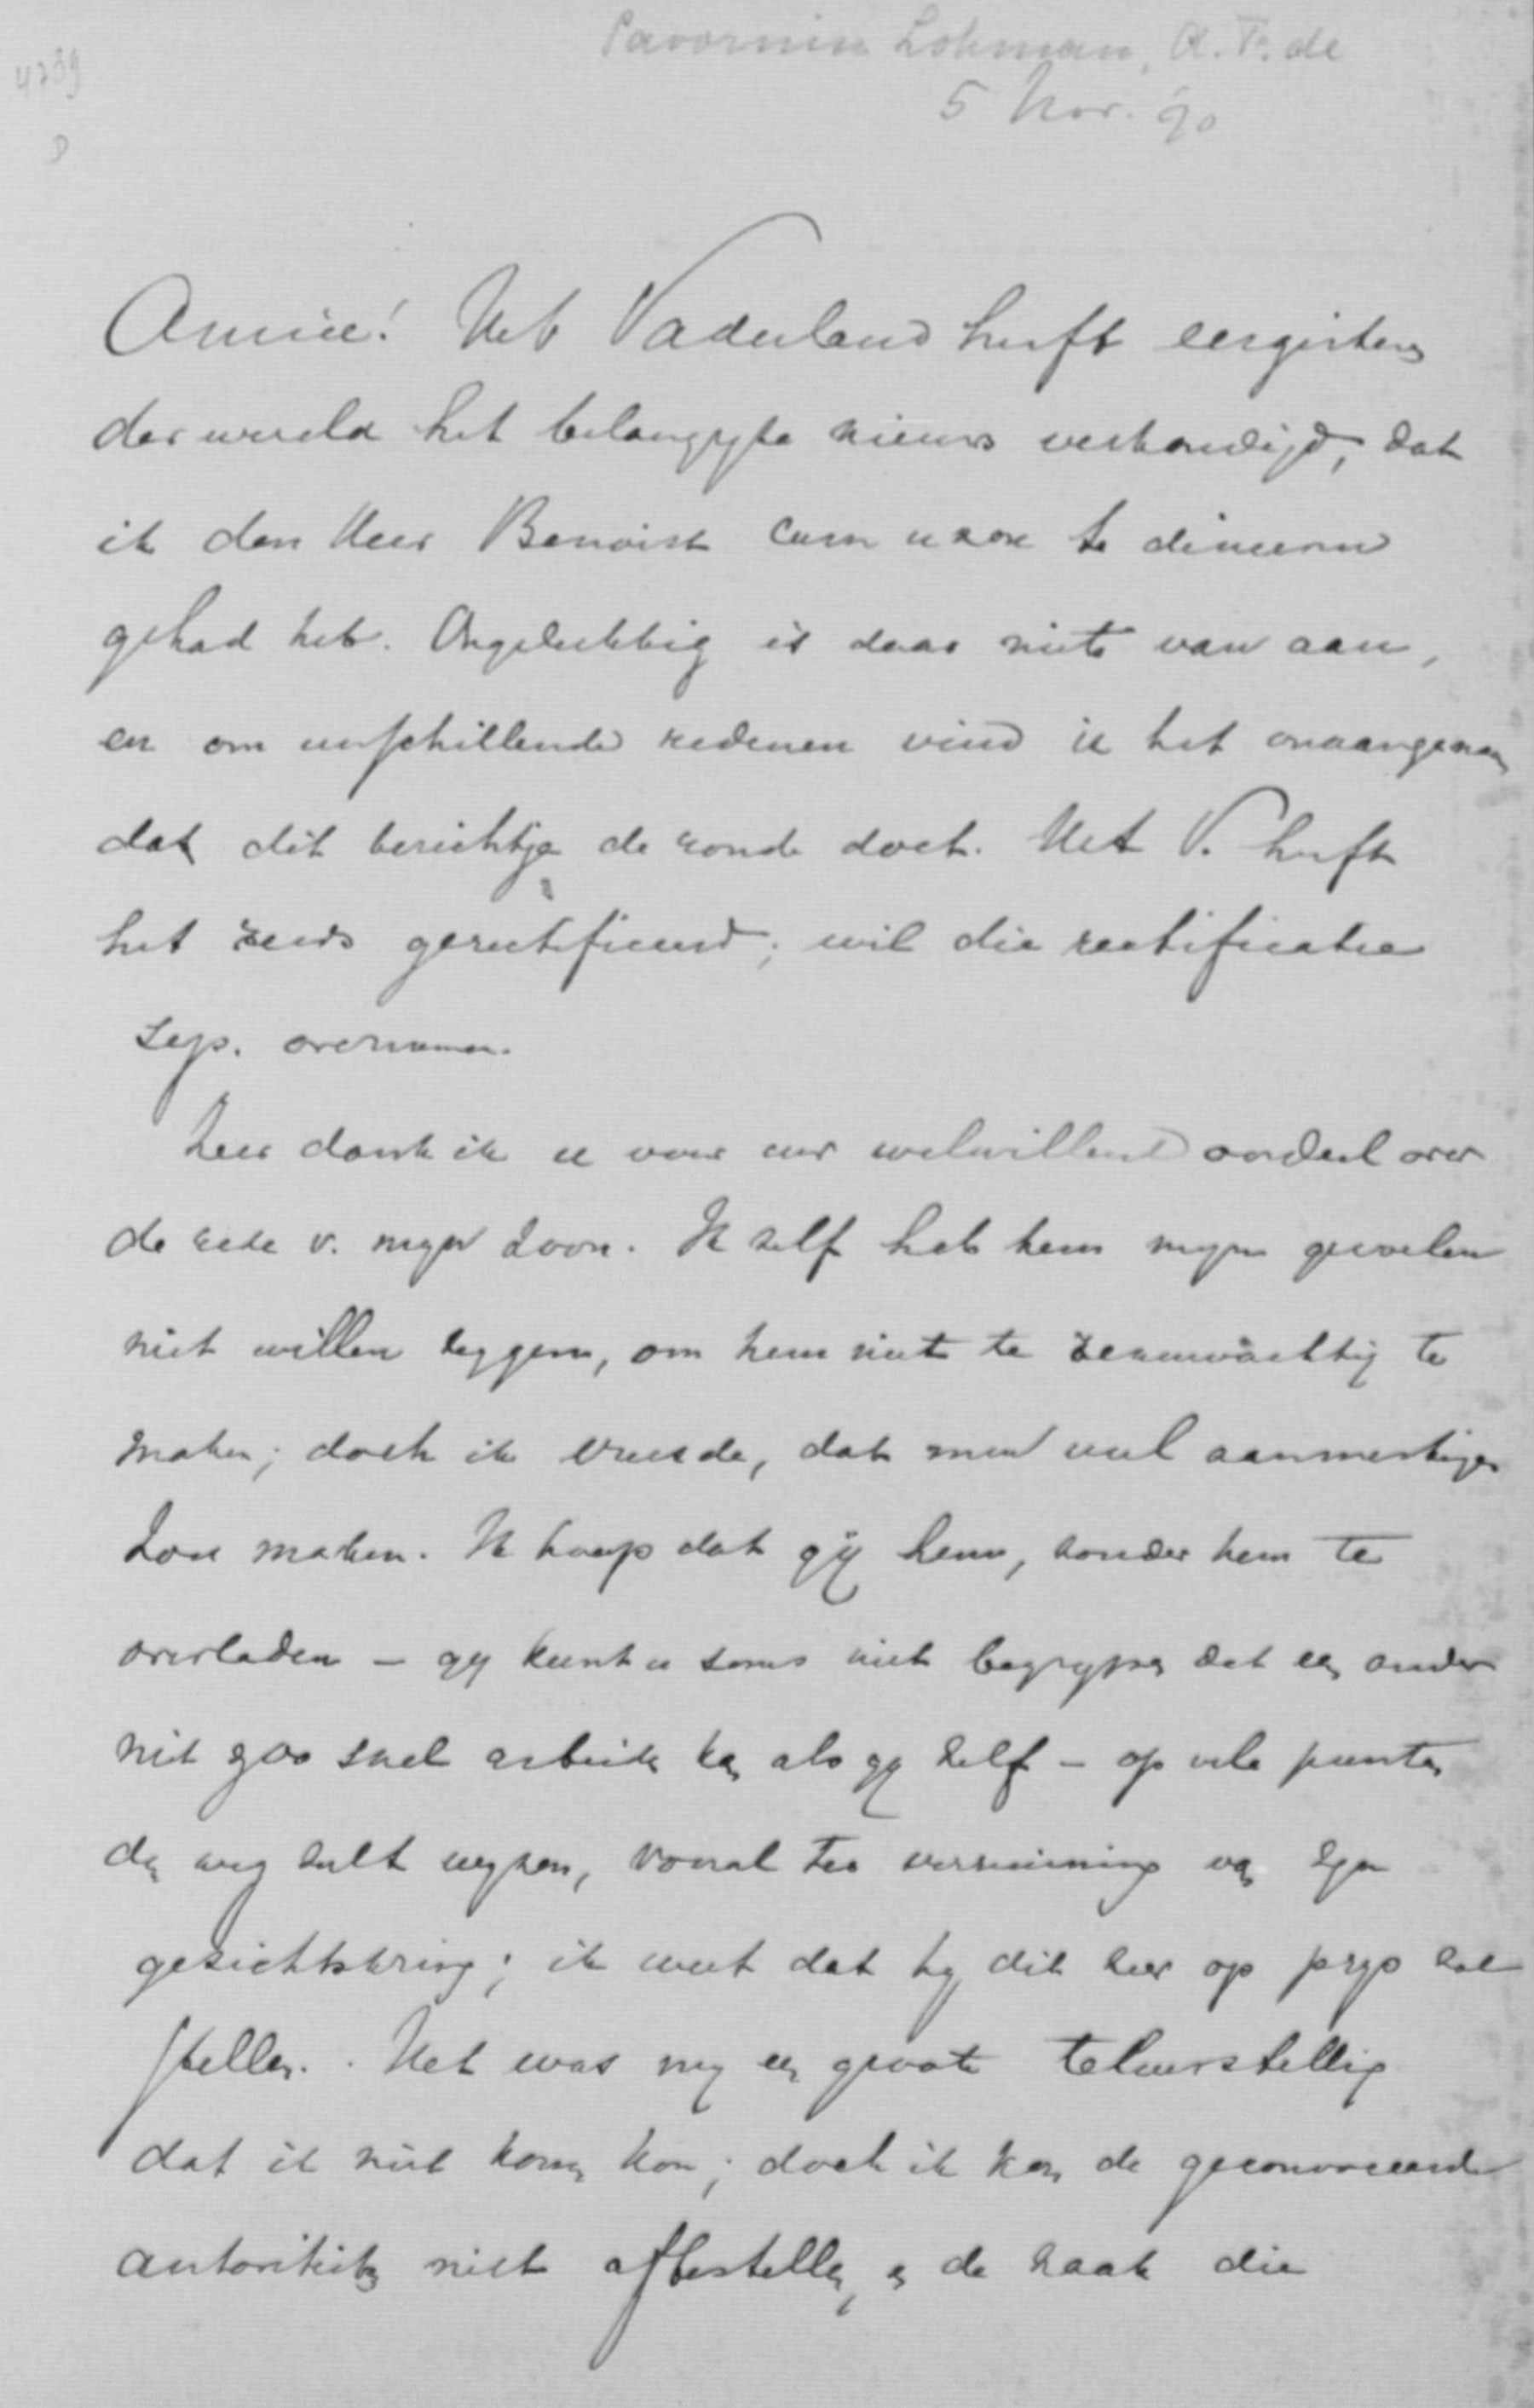 Savornin Lohman, A. F. de
5 Nov. 90
4739
Amice! Het Vaderland heeft eergisteren
der wereld het belangrijke nieuws verkondigd, dat
ik den Heer Benoist cum uxore te dineeren
gehad heb. Ongelukkig is daar niets van aan,
en om verschillende redenen vind ik het onaangenaam
dat dit berichtje de ronde doet. Het V. heeft
het reeds gerectificeerd; wil die rectificatie
s.v.p. overnemen.
Zeer dank ik u voor uw welwillend oordeel over
de rede v. mijn zoon. Ik zelf heb hem mijn gevoelen
niet willen zeggen, om hem niet te zenuwachtig te
maken; doch ik vreesde, dat men veel aanmerkingen
zou maken. Ik hoop dat gij hem, zonder hem te
overladen – gij kunt u soms niet begrijpen dat een ander
niet zoo snel arbeiden kan als gij zelf – op vele punten
den weg zult wijzen, vooral ter verruiming van zijn
gezichtskring; ik weet dat hij dit zeer op prijs zal
stellen. Het was mij een groote teleurstelling
dat ik niet komen kon; doch ik kon de geconvoceerde
autoriteiten niet afbestellen, en de zaak die